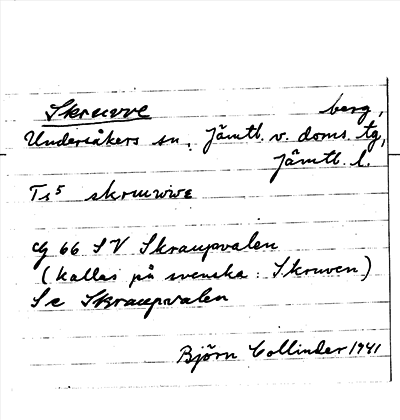 Skruvve berg,
Undersåkers sn, Jämtl. v. doms. tg,
Jämtl. l.
Ts⁵ skruvwwe
cg 66 SV Skraupvalen
(kallas på svenska: Skruven)
Se Skraupvalen
Björn Collinder 1941